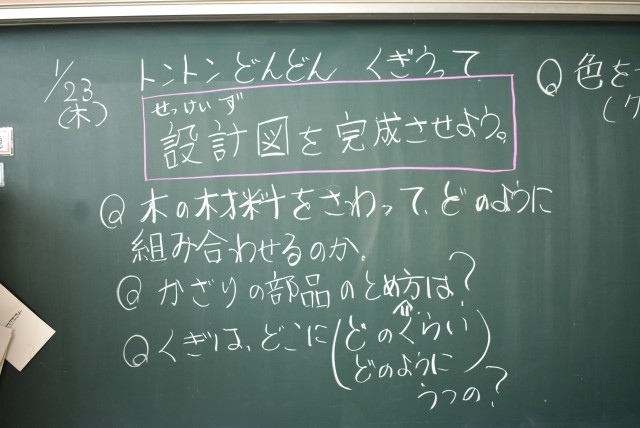 1/23
(木)
トントンどんどん くぎうって
せっけいず
設計図を完成させよう。
Q 木の材料をさわって、どのように
組み合わせるのか。
Q かざりの部品のとめ方は?
Q くぎは、どこに(どのくらい
どのように)
うつの?
Q 色を
(ク